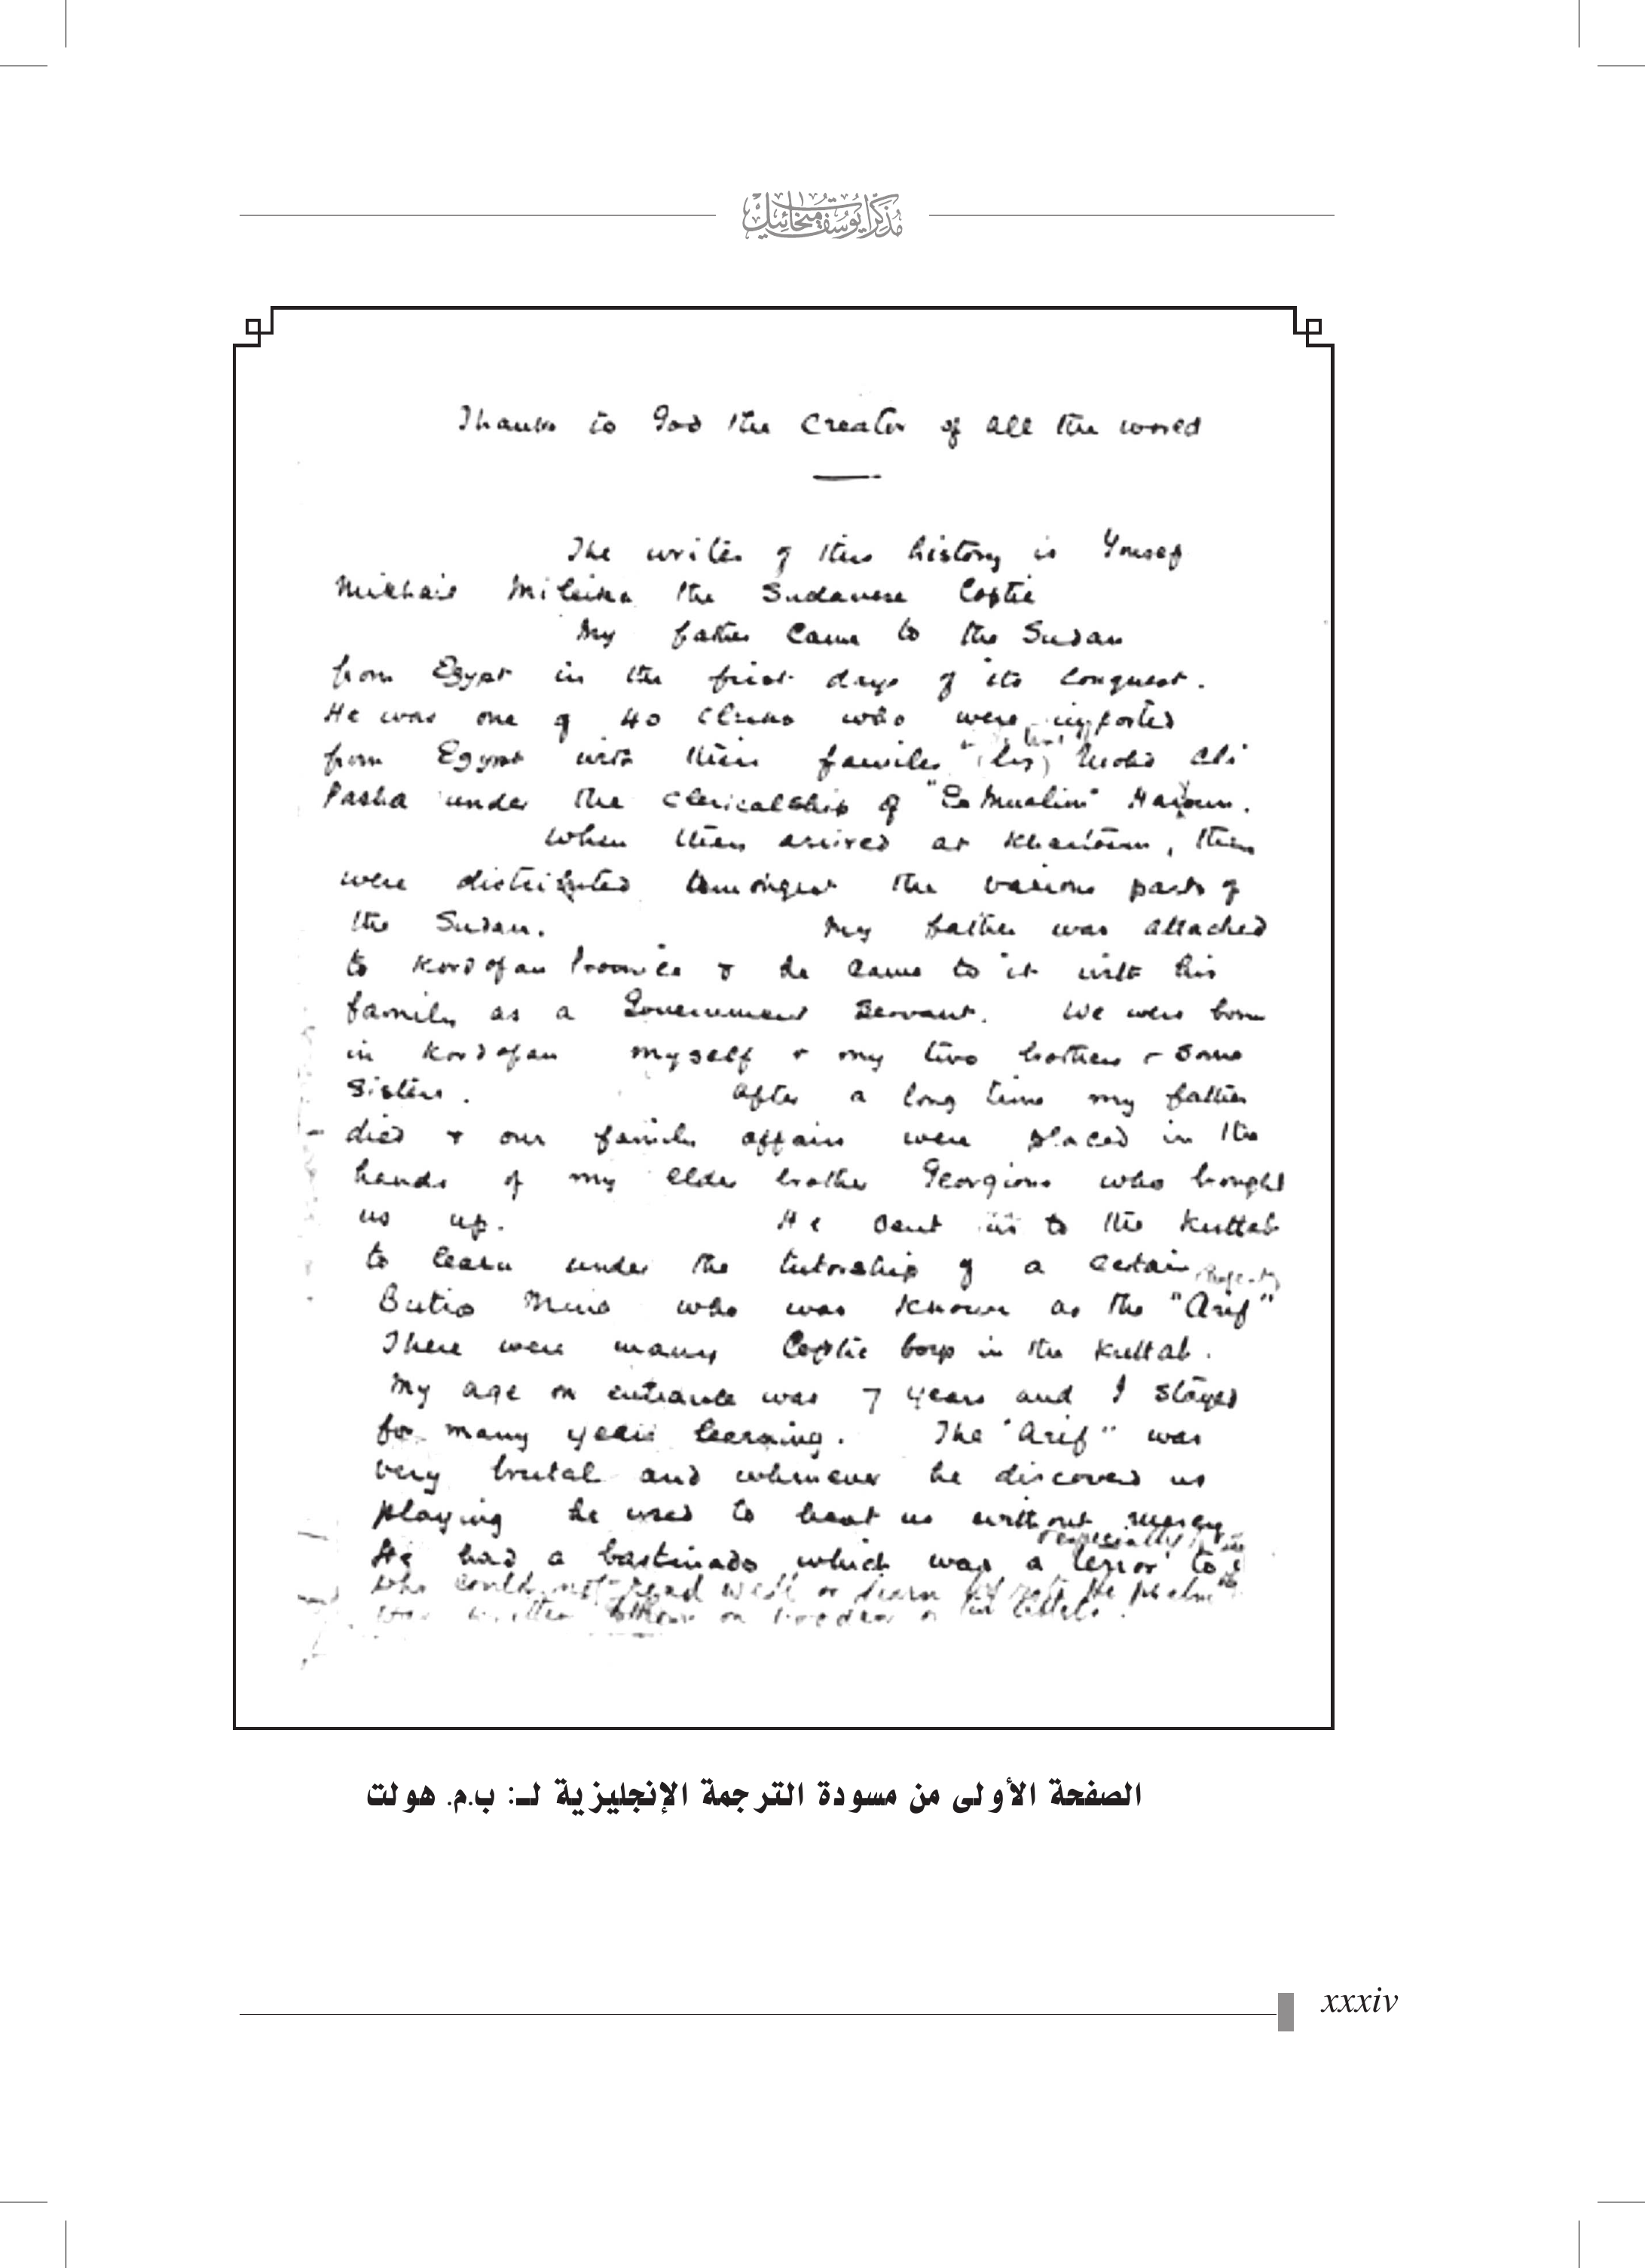 مذكرات يوسف ميخائيل
Thanks to God the Creator of all the world
The writer of this history is Yousef
Mikhail Mileika the Sudanese Coptic
My father came to the Sudan
from Egypt in the first days of its conquest.
He was one of 40 Clerks who were imported
from Egypt with their families (by) Mohd Ali
Pasha under the clericalship of "El Mualim"
When they arrived at Khartoum, they
were distributed amongst the various parts of
the Sudan. My father was attached
to Kordofan Province & he came to it with his
family as a Government Servant. We were born
in Kordofan myself & my two brothers & some
Sisters. After a long time my father
died & our family affairs were placed in the
hands of my elder brother Georgious who brought
us up. He sent us to the Kuttab
to learn under the tutorship of a certain
who was known as the "Arif"
There were many Coptic boys in the Kuttab.
My age on entrance was 7 years and I stayed
for many years learning. The "Arif" was
very brutal and whenever he discovered us
playing he used to beat us without mercy
especially
He had a bastinado which was a terror to
who could not read well or learn the psalm
written on
الصفحة الأولى من مسودة الترجمة الإنجليزية لـ: ب.م. هولت
xxxiv